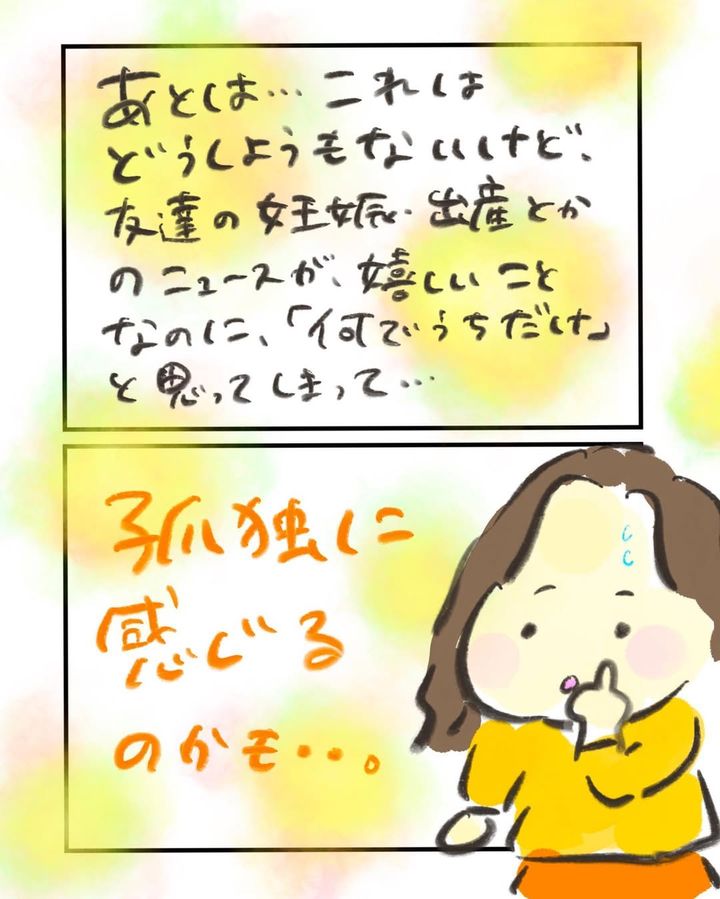 あとは…これは
どうしようもないけど、
友達の妊娠・出産とか
のニュースが、嬉しいこと
なのに、「何でうちだけ」
と思ってしまって…
孤独に
感じる
のかも…。